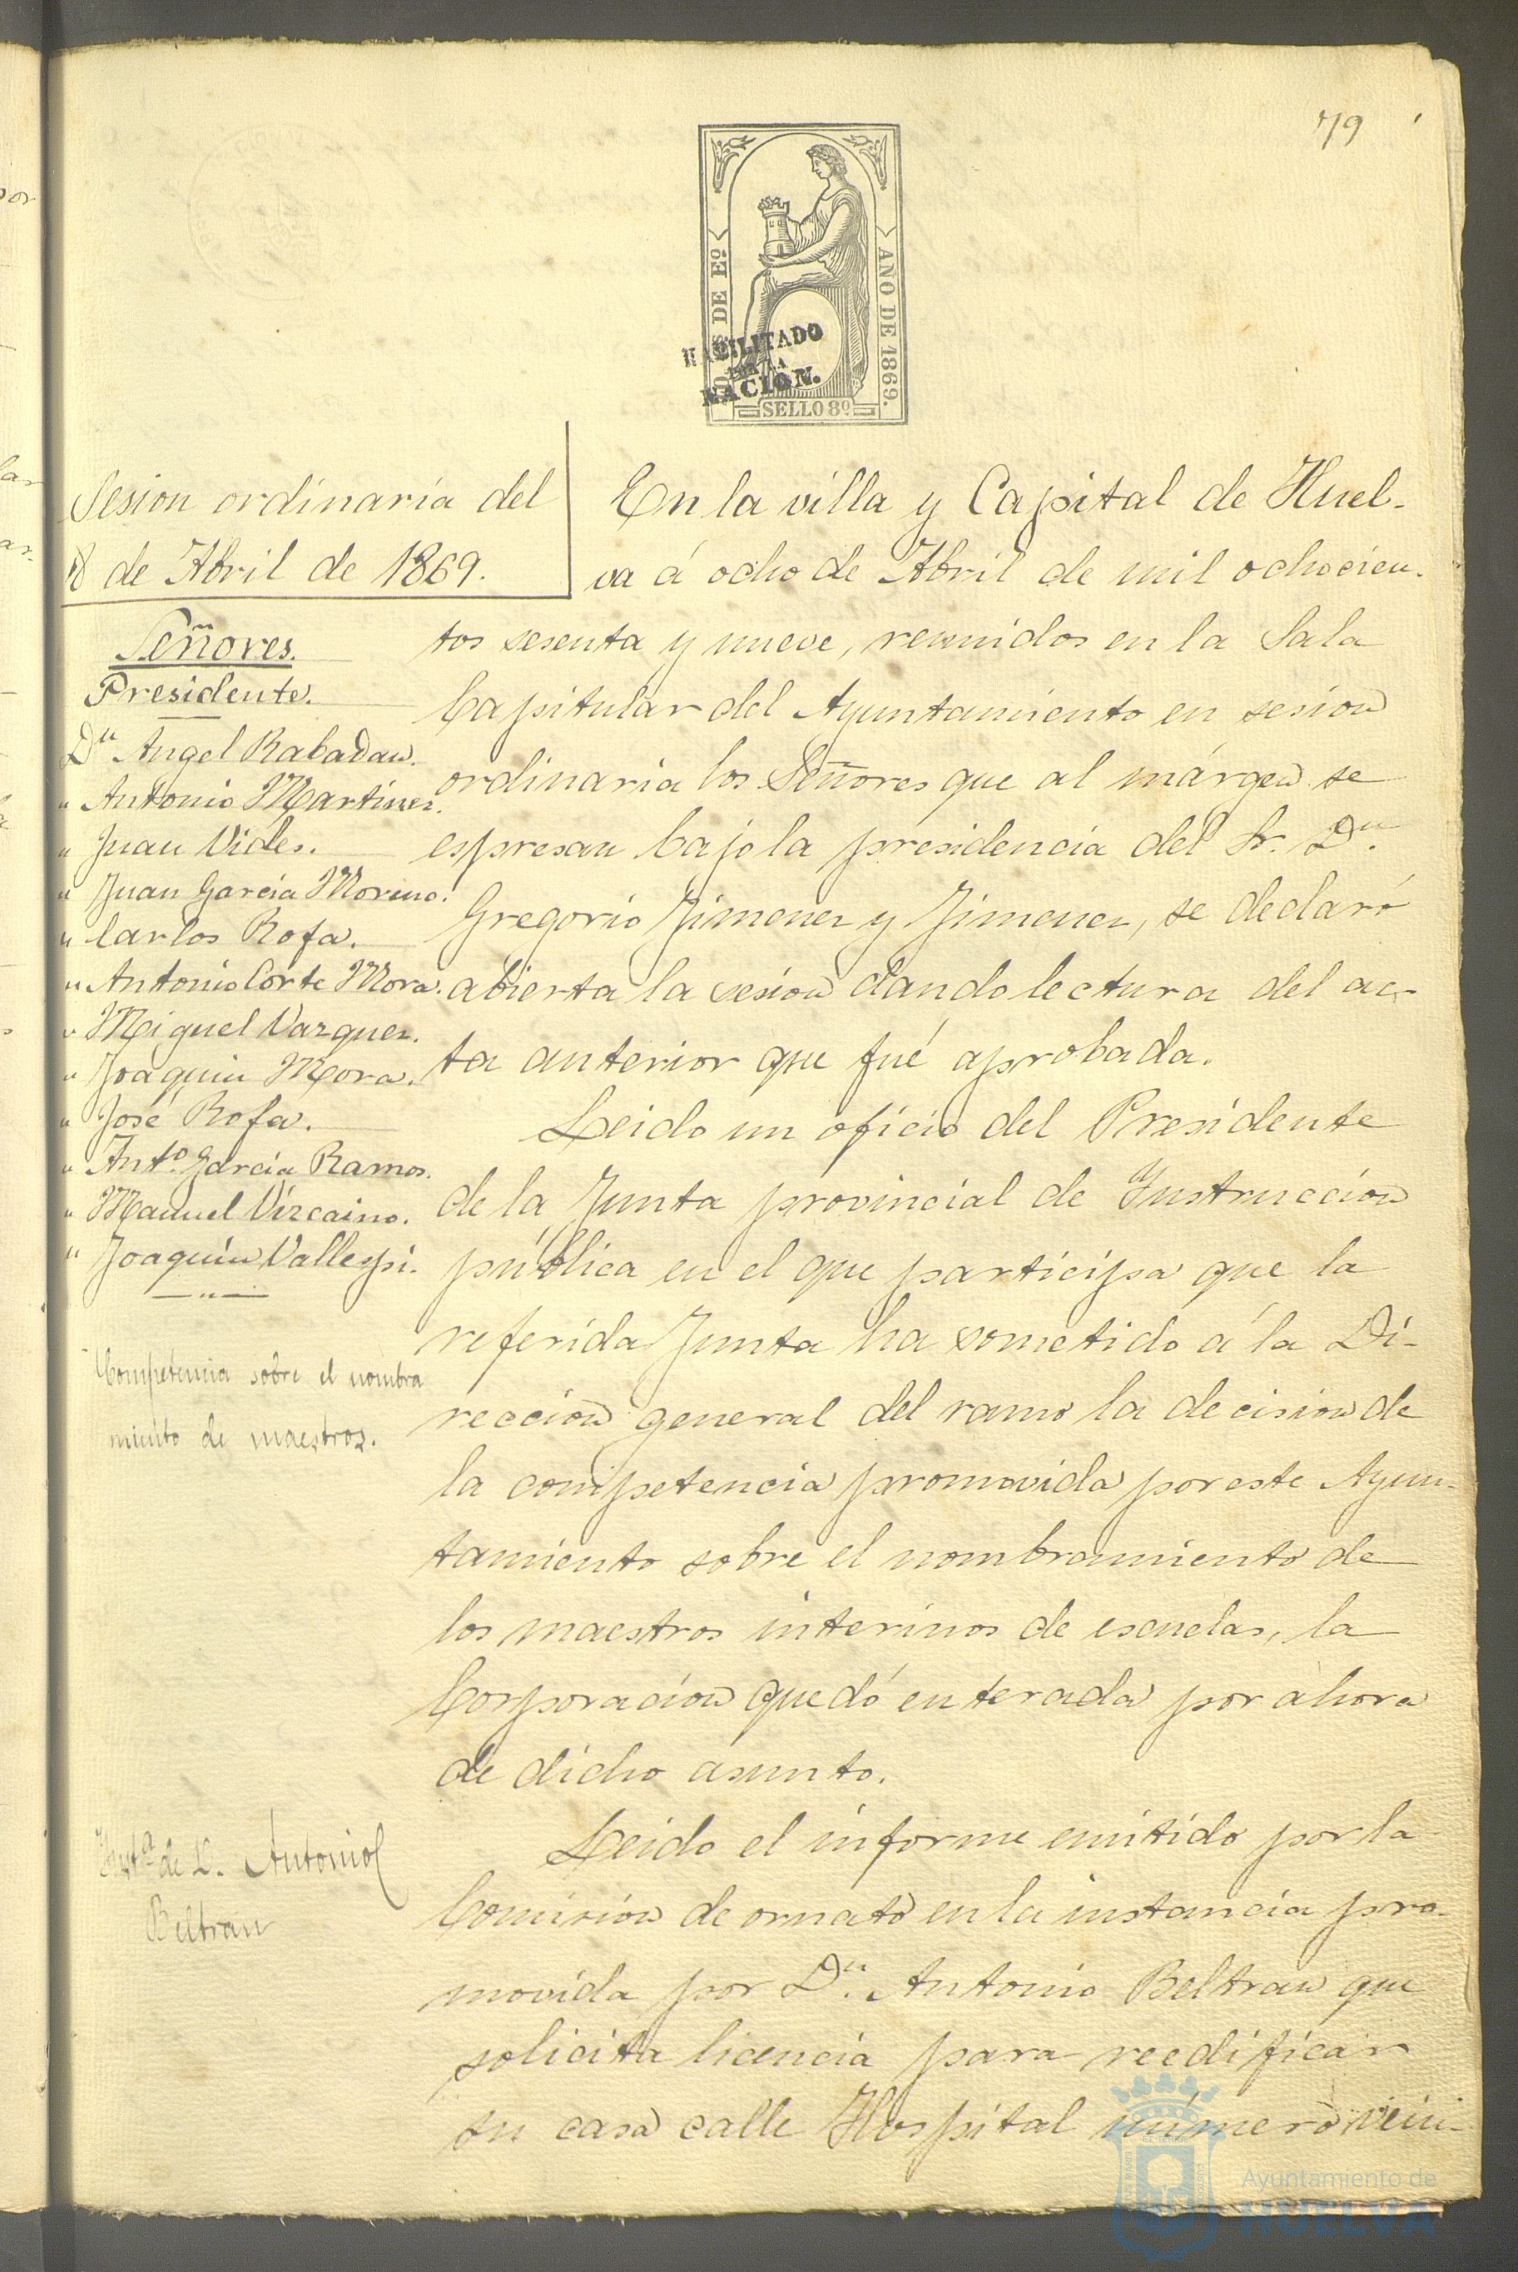 79
S DE Eº
AÑO DE 1869.
HABILITADO
POR LA
NACION.
SELLO 8º
Sesion ordinaria del
8 de Abril de 1869.
Señores.
Presidente.
Dn Angel Rabadan.
" Antonio Martinez.
" Juan Vides.
" Juan Garcia Moreno.
" Carlos Rofa.
" Antonio Corte Mora.
" Miguel Vazquez.
" Joaquin Mora.
" José Rofa.
" Anto. Garcia Ramos.
" Manuel Vizcaino.
" Joaquin Vallespi.
Competencia sobre el nombra
miento de maestros.
Insta de D. Antonio
Beltran
En la villa y Capital de Huel-
va á ocho de Abril de mil ochocien-
tos sesenta y nueve, reunidos en la Sala
Capitular del Ayuntamiento en sesion
ordinaria los Señores que al márgen se
espresan bajo la presidencia del Sr. Dn.
Gregorio Jimenez y Jimenez, se declaró
abierta la sesion dando lectura del ac-
ta anterior que fué aprobada.
Leido un oficio del Presidente
de la Junta provincial de Instruccion
pública en el que participa que la
referida Junta ha sometido á la Di-
reccion general del ramo la decision de
la competencia promovida por este Ayun-
tamiento sobre el nombramiento de
los maestros interinos de escuelas, la
Corporacion quedó enterada por ahora
de dicho asunto.
Leido el informe emitido por la
Comision de ornato en la instancia pro-
movida por Dn. Antonio Beltran que
solicita licencia para reedificar
su casa calle Hospital número vein-
Ayuntamiento de
HUELVA